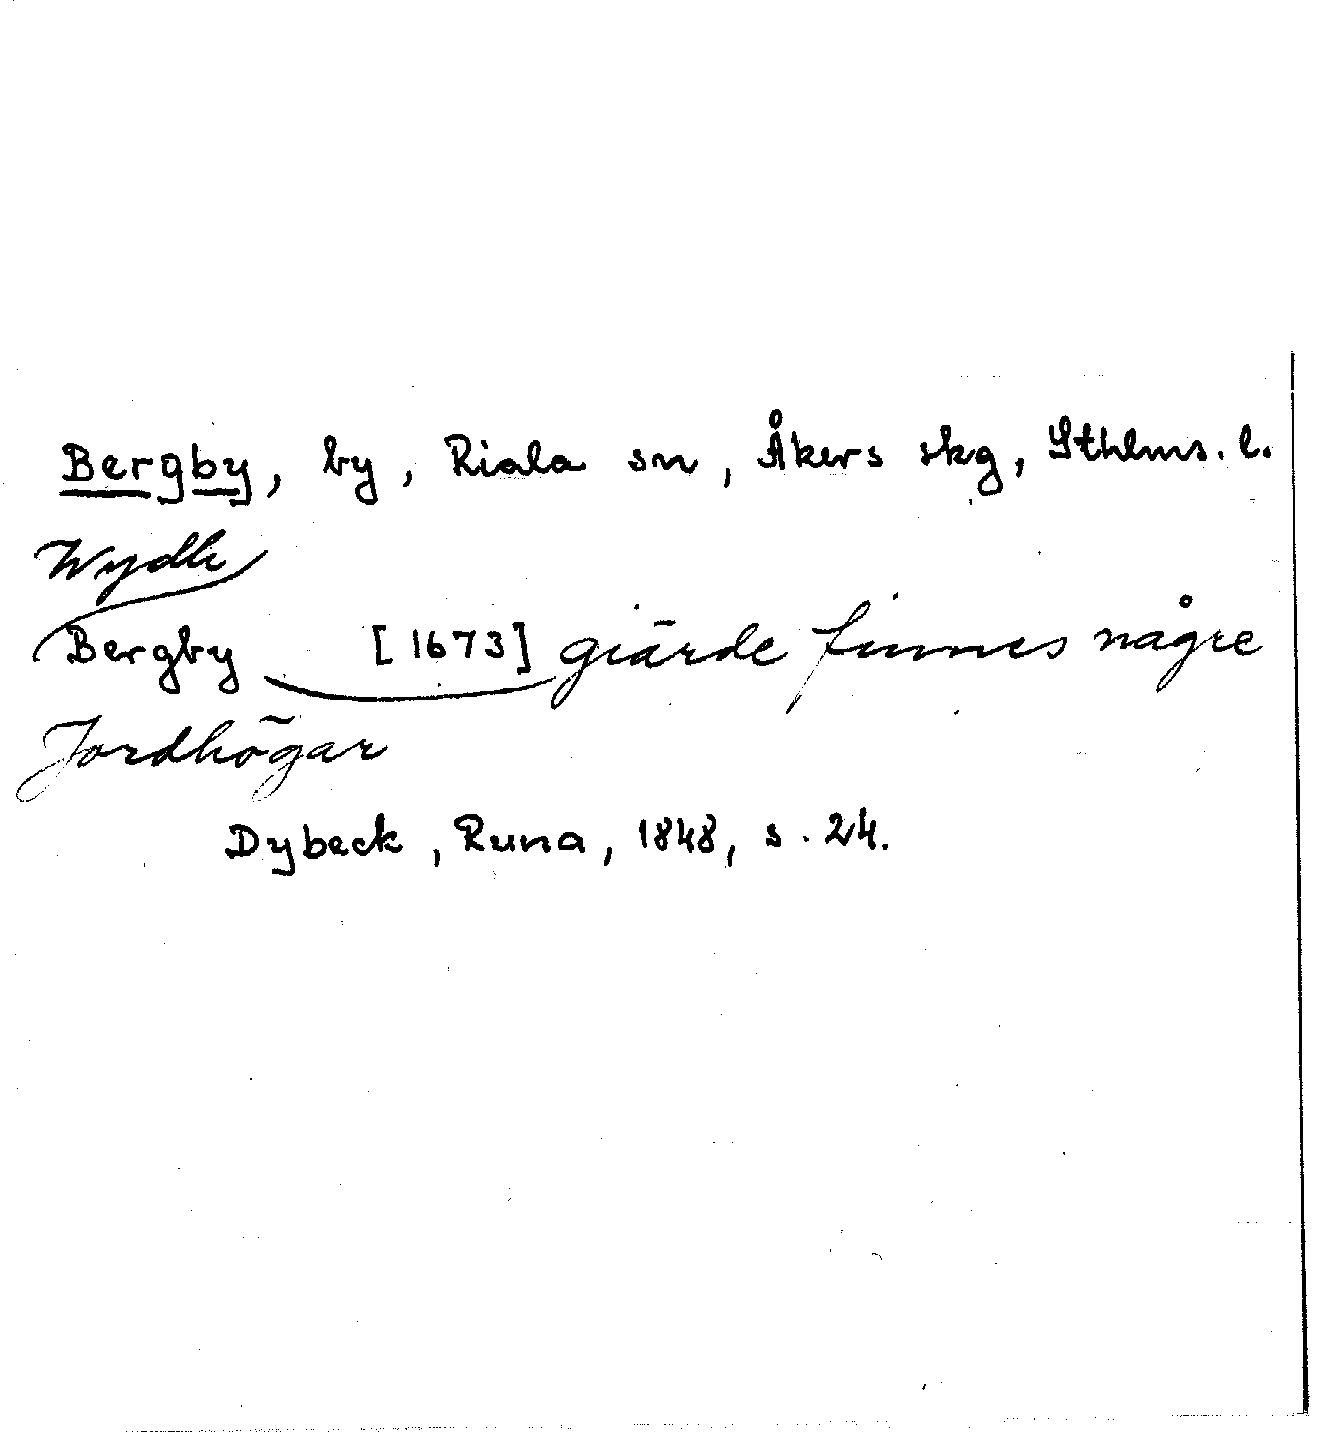 Bergby, by, Riala sn, Åkers skg, Sthlms. l.
Wydh
Bergby [1673] giärde finnes någre
Jordhögar
Dybeck, Runa, 1848, s. 24.